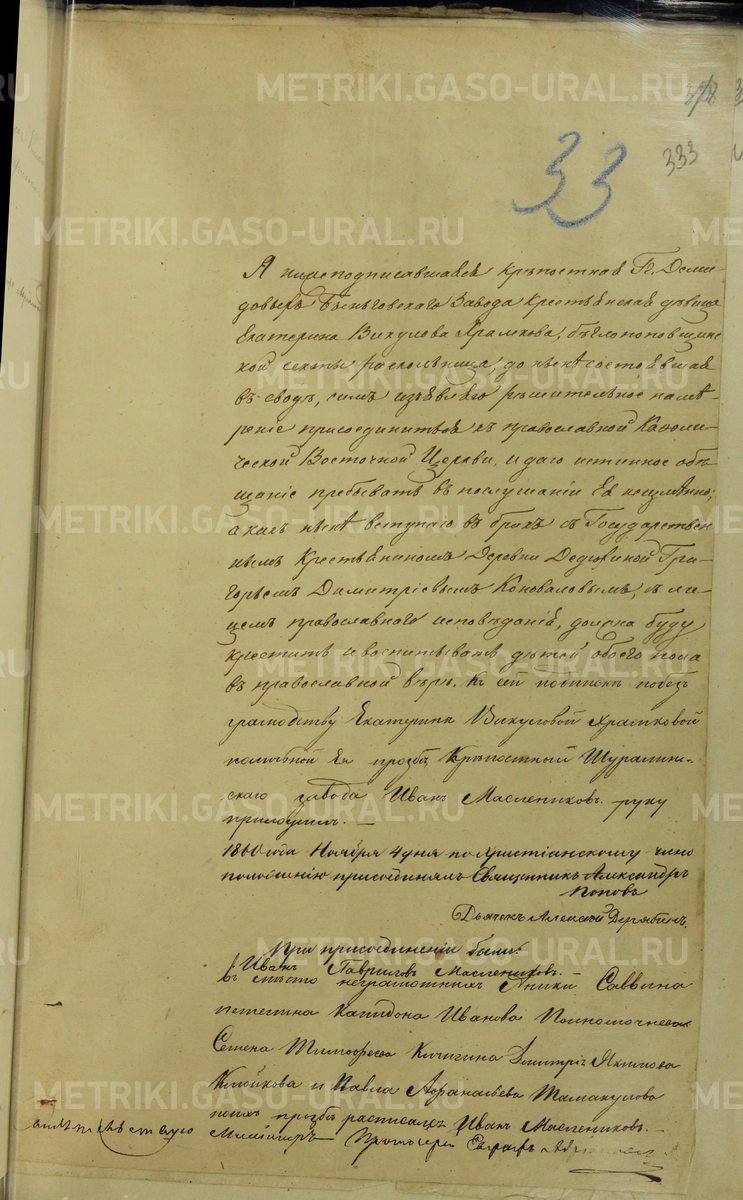 METRIKI.GASO-URAL.RU
33
333
Я нижеподписавшаяся крѣпостная Г. Деми
довыхъ Быньговскаго Завода крестьянская дѣвица
Екатерина Викулова Храмкова, бѣглопоповщин
ской секты раскольница, до нынѣ состоявшая
въ сводѣ, симъ изъявляю рѣшительное намѣ
реніе присоединиться къ православной Каѳоли
ческой Восточной Церкви, и даю истинное обѣ
щаніе пребывать въ послушаніи Ея неизмѣнно;
а какъ нынѣ вступаю въ бракъ съ Государствен
нымъ крестьяниномъ Деревни Дедюхиной Гри
горьемъ Димитріевымъ Коноваловымъ, съ ли
цемъ православнаго исповѣданія, должна буду
крестить и воспитывать дѣтей обоего пола
въ православной вѣрѣ. Къ сей подпискѣ побез
грамодству Екатерины Викуловой Храмковой
поличной Ея прозбѣ Крѣпостный Шуралин
скаго завода Иванъ Маслениковъ руку
приложилъ.
1860 года Ноября 4 дня по Христіанскому чино
положенію присоединялъ Священникъ Александръ
Поповъ
Дьячекъ Алексѣй Дерябинъ.
При присоединеніи были:
Иванъ Гавриловъ Маслениковъ.
въ мѣсто неграмотныхъ Аники Саввина
Капидона Иванова
Семена Тимофеева Кичигина Дмитрія Якимова
и Павла Афанасьева Тамакулова
ихъ прозбѣ расписался Иванъ Маслениковъ.
Миссіонеръ Протоіерей